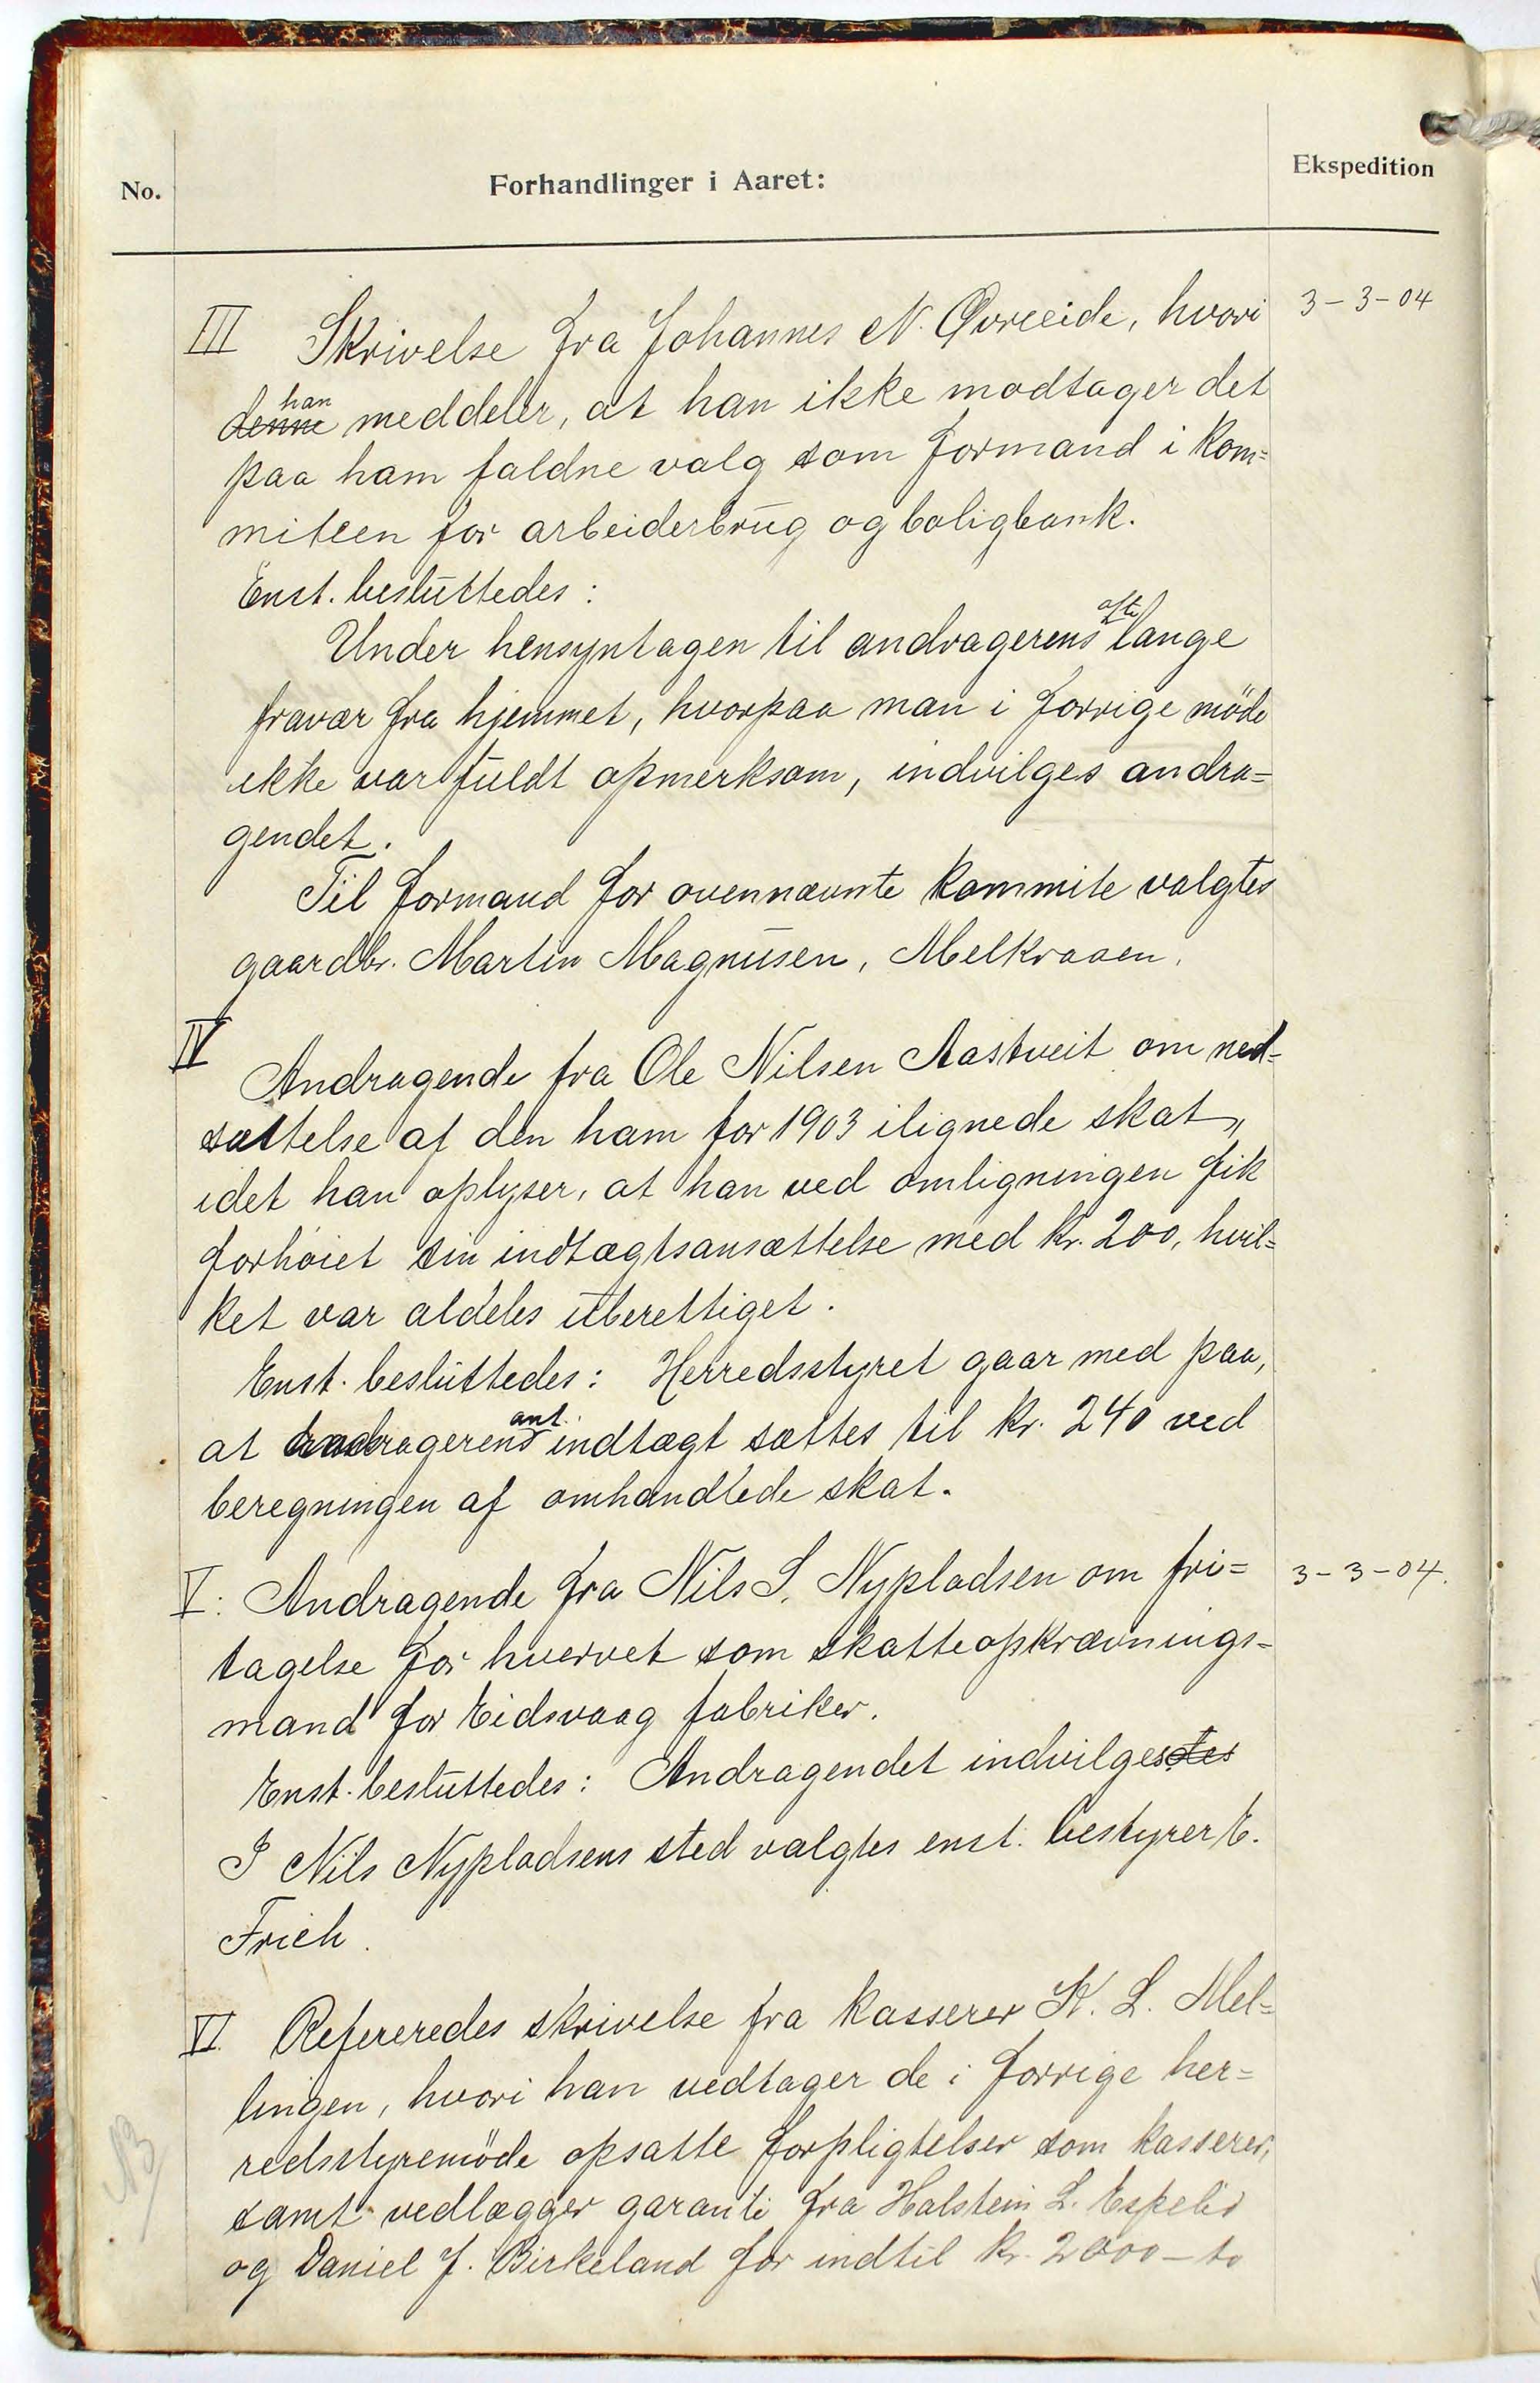 No.
Forhandlinger i Aaret:
Ekspedition
III Skrivelse fra Johannes N. Øvreeide, hvori 3-3-04
denne han meddeler, at han ikke modtager det
paa ham faldne valg som formand i kom=
miteen for arbeiderbrug og boligbank.
Enst. besluttedes:
Under hensyntagen til andragerens ofte lange
fravær fra hjemmet, hvorpaa man i forrige möde
ikke var fuldt opmerksom, indvilges andra=
gendet.
Til formand for ovennævnte kommite valgtes
gaardbr. Martin Magnusen, Melkraaen.
IV
Andragende fra Ole Nilsen Aastveit om ned=
sættelse af den ham for 1903 ilignede skat,
idet han oplyser, at han ved omligningen fik
forhöiet sin indtægtsansættelse med kr. 200, hvil=
ket var aldeles uberettiget.
Enst. besluttedes: Herredsstyret gaar med paa,
at andragerens ant. indtægt sættes til kr. 240 ved
beregningen af omhandlede skat.
V: Andragende fra Nils S. Nypladsen om fri= 3-3-04.
tagelse for hvervet som skatteopkrævnings=
mand for Eidsvaag fabriker.
Enst. besluttedes: Andragendet indvilgestes
I Nils Nypladsens sted valgtes enst. bestyrer E.
Frich.
VI. Refereredes skrivelse fra kasserer K. L. Mel=
lingen, hvori han vedtager de i forrige her=
redsstyremöde opsatte forpligtelser som kasserer,
NB
samt vedlægger garanti fra Halstein L. Espelid
og Daniel J. Birkeland for indtil kr. 2000 – to